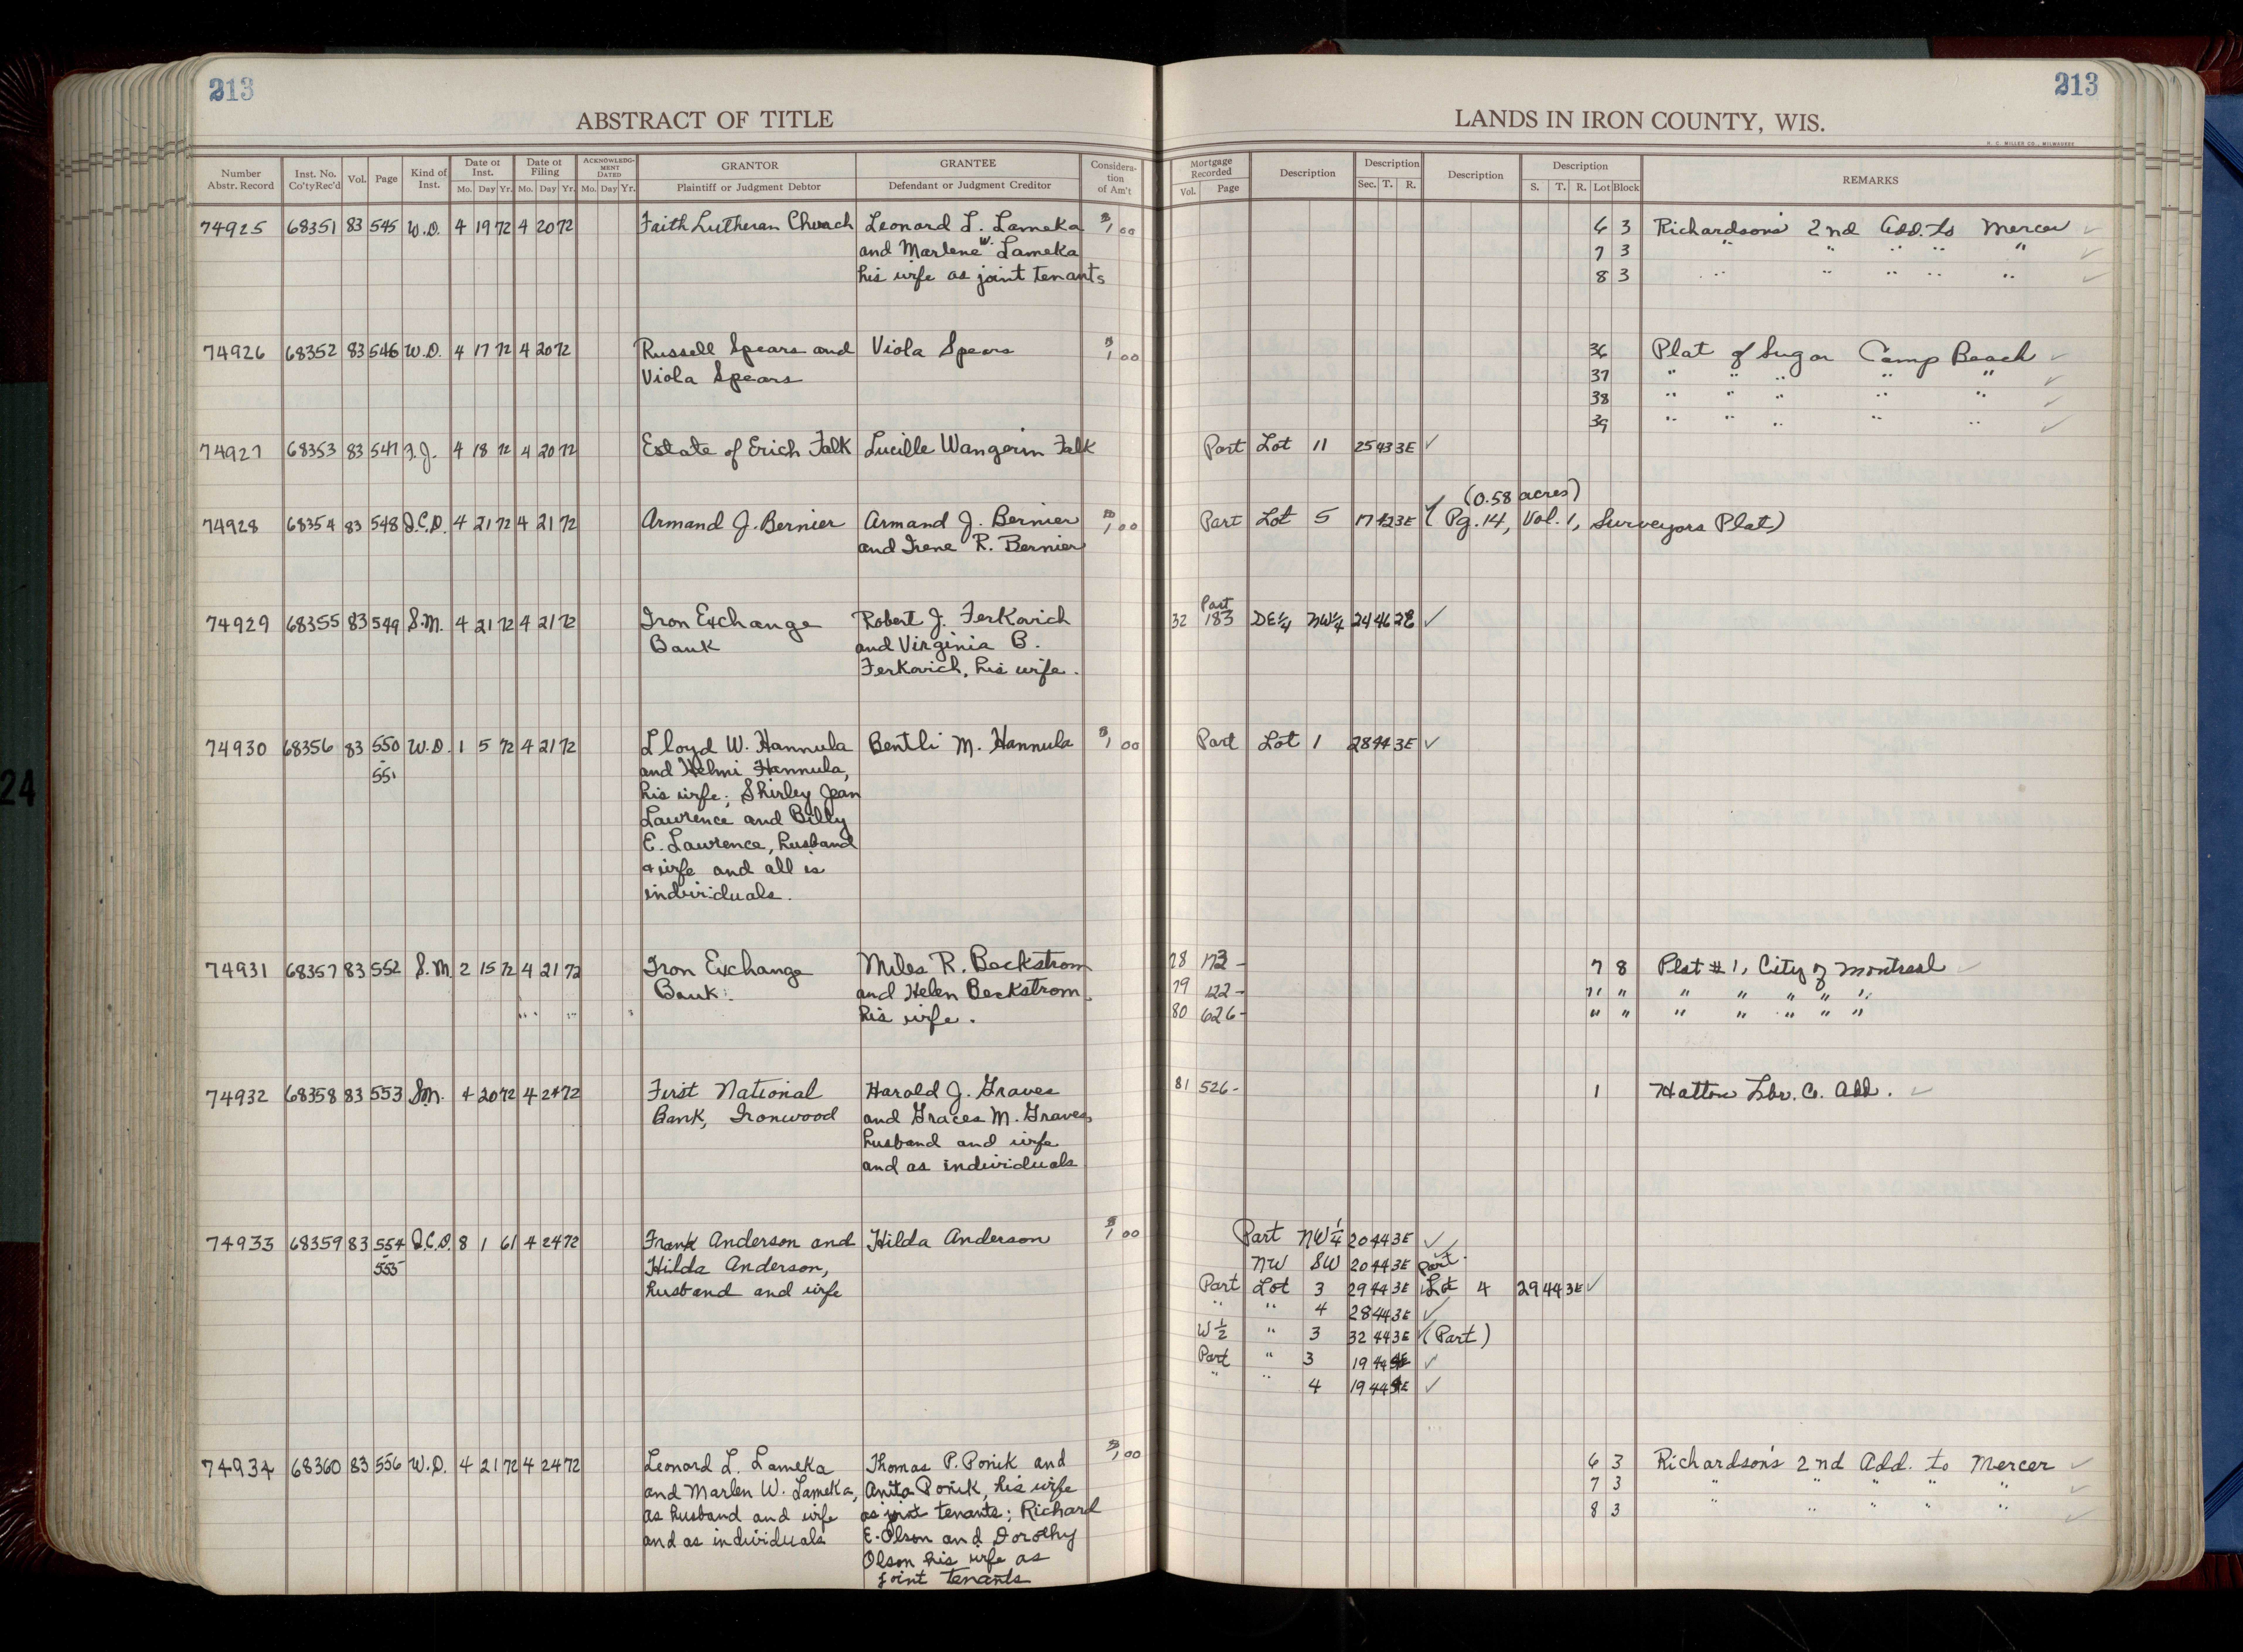 213
213
ABSTRACT OF TITLE
LANDS IN IRON COUNTY, WIS.
H. C. MILLER CO., MILWAUKEE
Number Abstr. Record Inst. No. Co'ty Rec'd Vol. Page Kind of Inst. Date of Inst. Mo. Day Yr. Date of Filing Mo. Day Yr. ACKNOWLEDGMENT DATED Mo. Day Yr. GRANTOR Plaintiff or Judgment Debtor GRANTEE Defendant or Judgment Creditor Consideration of Am't Mortgage Recorded Vol. Page Description Description Sec. T. R. Description Description S. T. R. Lot Block REMARKS
74925 68351 83 545 W.D. 4 19 72 4 20 72 Faith Lutheran Church Leonard L. Lameka $1,00 6 3 Richardson's 2nd Add. to Mercer ✓
and Marlene W. Lameka 7 3 " " " " " ✓
his wife as joint tenants 8 3 " " " " " ✓
74926 68352 83 546 W.D. 4 17 72 4 20 72 Russell Spears and Viola Spears $1,00 36 Plat of Sugar Camp Beach ✓
Viola Spears 37 " " " " " ✓
38 " " " " " ✓
39 " " " " " ✓
74927 68353 83 547 F.J. 4 18 72 4 20 72 Estate of Erich Falk Lucille Wangerin Falk Part Lot 11 25 43 3E ✓
(0.58 acres)
74928 68354 83 548 Q.C.D. 4 21 72 4 21 72 Armand J. Bernier Armand J. Bernier $1,00 Part Lot 5 17 42 3E ✓ (Pg. 14, Vol. 1, Surveyors Plat)
and Irene R. Bernier
Part
74929 68355 83 549 S.M. 4 21 72 4 21 72 Iron Exchange Robert J. Ferkovich 32 183 SE¼ NW¼ 24 46 2E ✓
Bank and Virginia B.
Ferkovich, his wife.
74930 68356 83 550 W.D. 1 5 72 4 21 72 Lloyd W. Hannula Bentli M. Hannula $1,00 Part Lot 1 28 44 3E ✓
- 551 and Helmi Hannula,
his wife; Shirley Jean
Lawrence and Billy
E. Lawrence, husband
& wife and all is
individuals.
74931 68357 83 552 S.M. 2 15 72 4 21 72 Iron Exchange Miles R. Backstrom 78 173 - 7 8 Plat #1, City of Montreal ✓
Bank. and Helen Backstrom, 79 122 - " " " " " " "
his wife. 80 626 - " " " " " " "
74932 68358 83 553 S.M. 4 20 72 4 24 72 First National Harold J. Graves 81 526 - 1 Hatton Lbr. Co. Add. ✓
Bank, Ironwood and Graces M. Graves,
husband and wife
and as individuals
74933 68359 83 554 Q.C.D. 8 1 61 4 24 72 Frank Anderson and Hilda Anderson $1,00 Part NW¼ 20 44 3E ✓
555 Hilda Anderson, NW SW 20 44 3E ✓ Part
husband and wife Part Lot 3 29 44 3E Lot 4 29 44 3E ✓
" " 4 28 44 3E ✓
W½ " 3 32 44 3E ✓ (Part)
Part " 3 19 44 ✓
" " 4 19 44 ✓
74934 68360 83 556 W.D. 4 21 72 4 24 72 Leonard L. Lameka Thomas P. Ponik and $1,00 6 3 Richardson's 2nd Add. to Mercer ✓
and Marlen W. Lameka, Anita Ponik, his wife 7 3 " " " " " ✓
as husband and wife as joint tenants; Richard 8 3 " " " " " ✓
and as individuals E. Olson and Dorothy
Olson his wife as
joint tenants
24